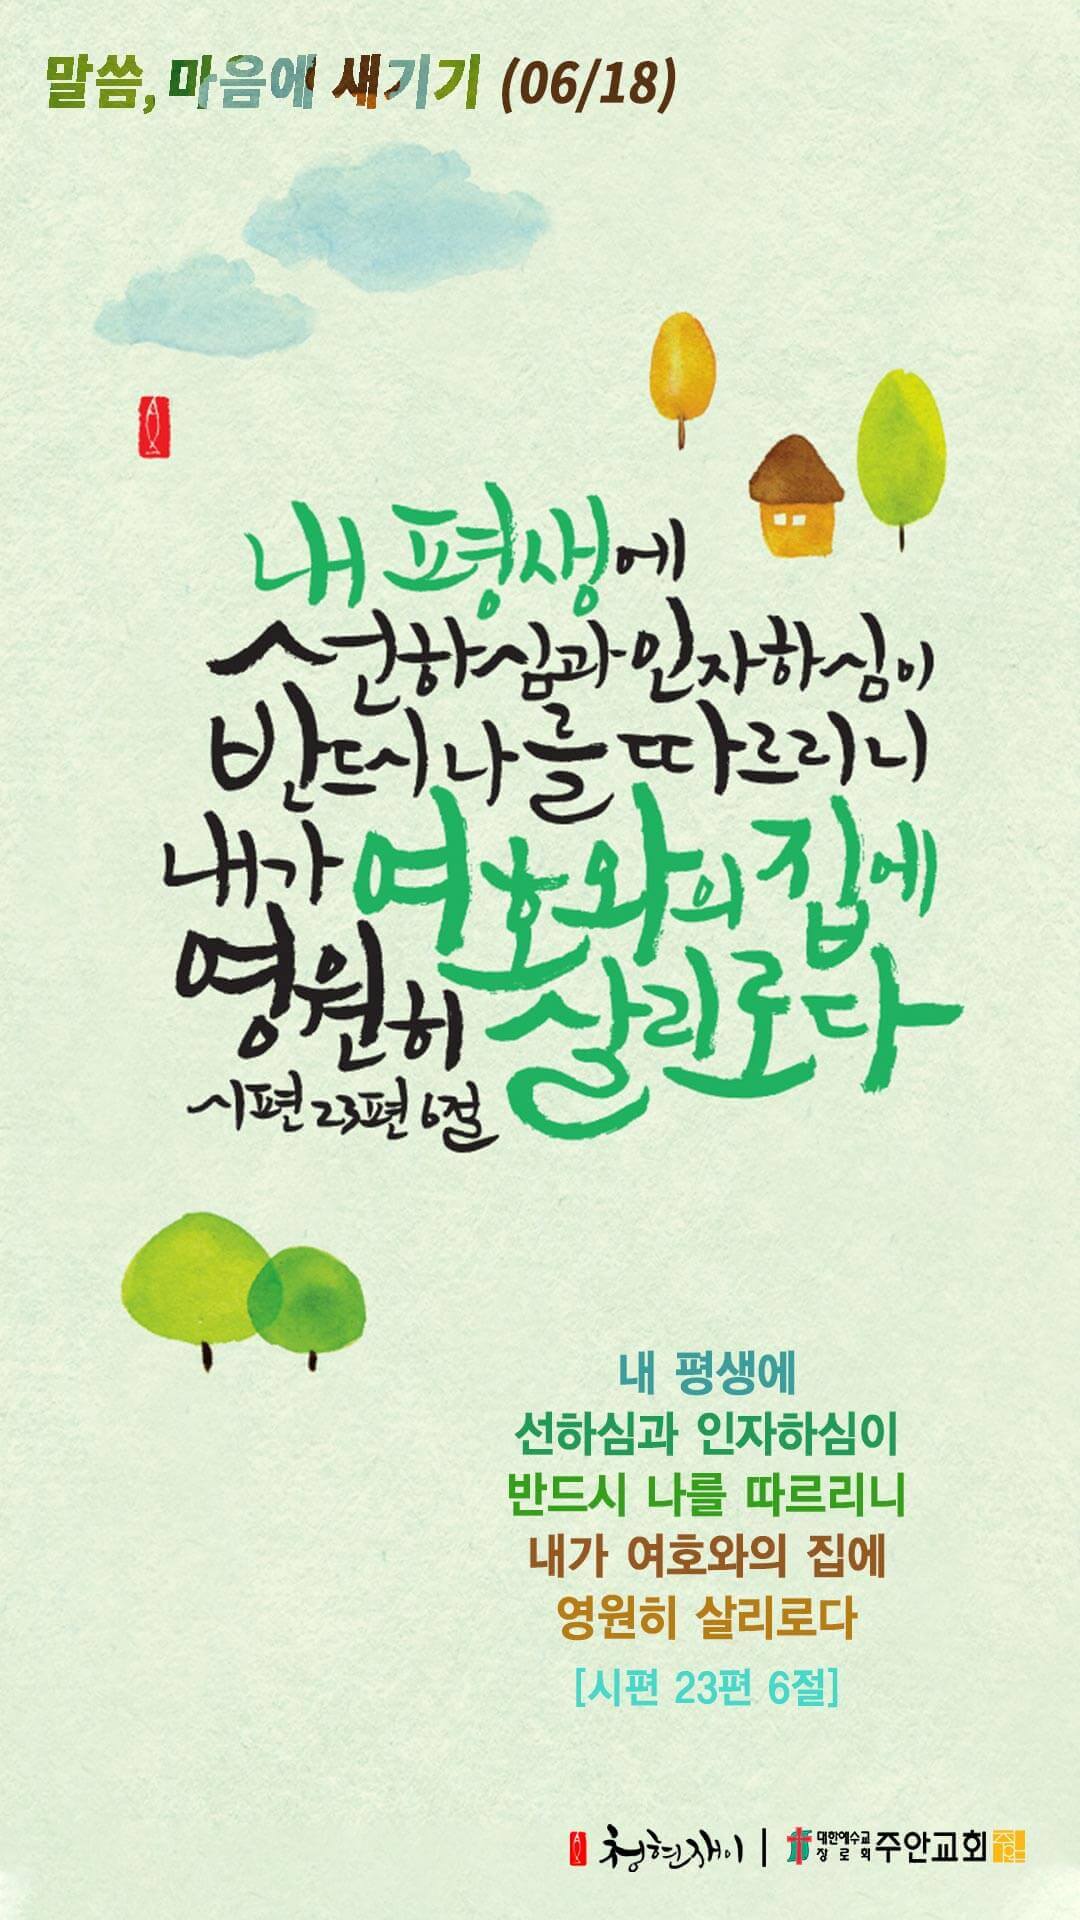 말씀, 마음에 새기기 (06/18)
내 평생에
선하심과 인자하심이
반드시 나를 따르리니
내가 여호와의 집에
영원히 살리로다
시편 23편 6절
내 평생에
선하심과 인자하심이
반드시 나를 따르리니
내가 여호와의 집에
영원히 살리로다
[시편 23편 6절]
청현재이 | 대한예수교 장로회 주안교회